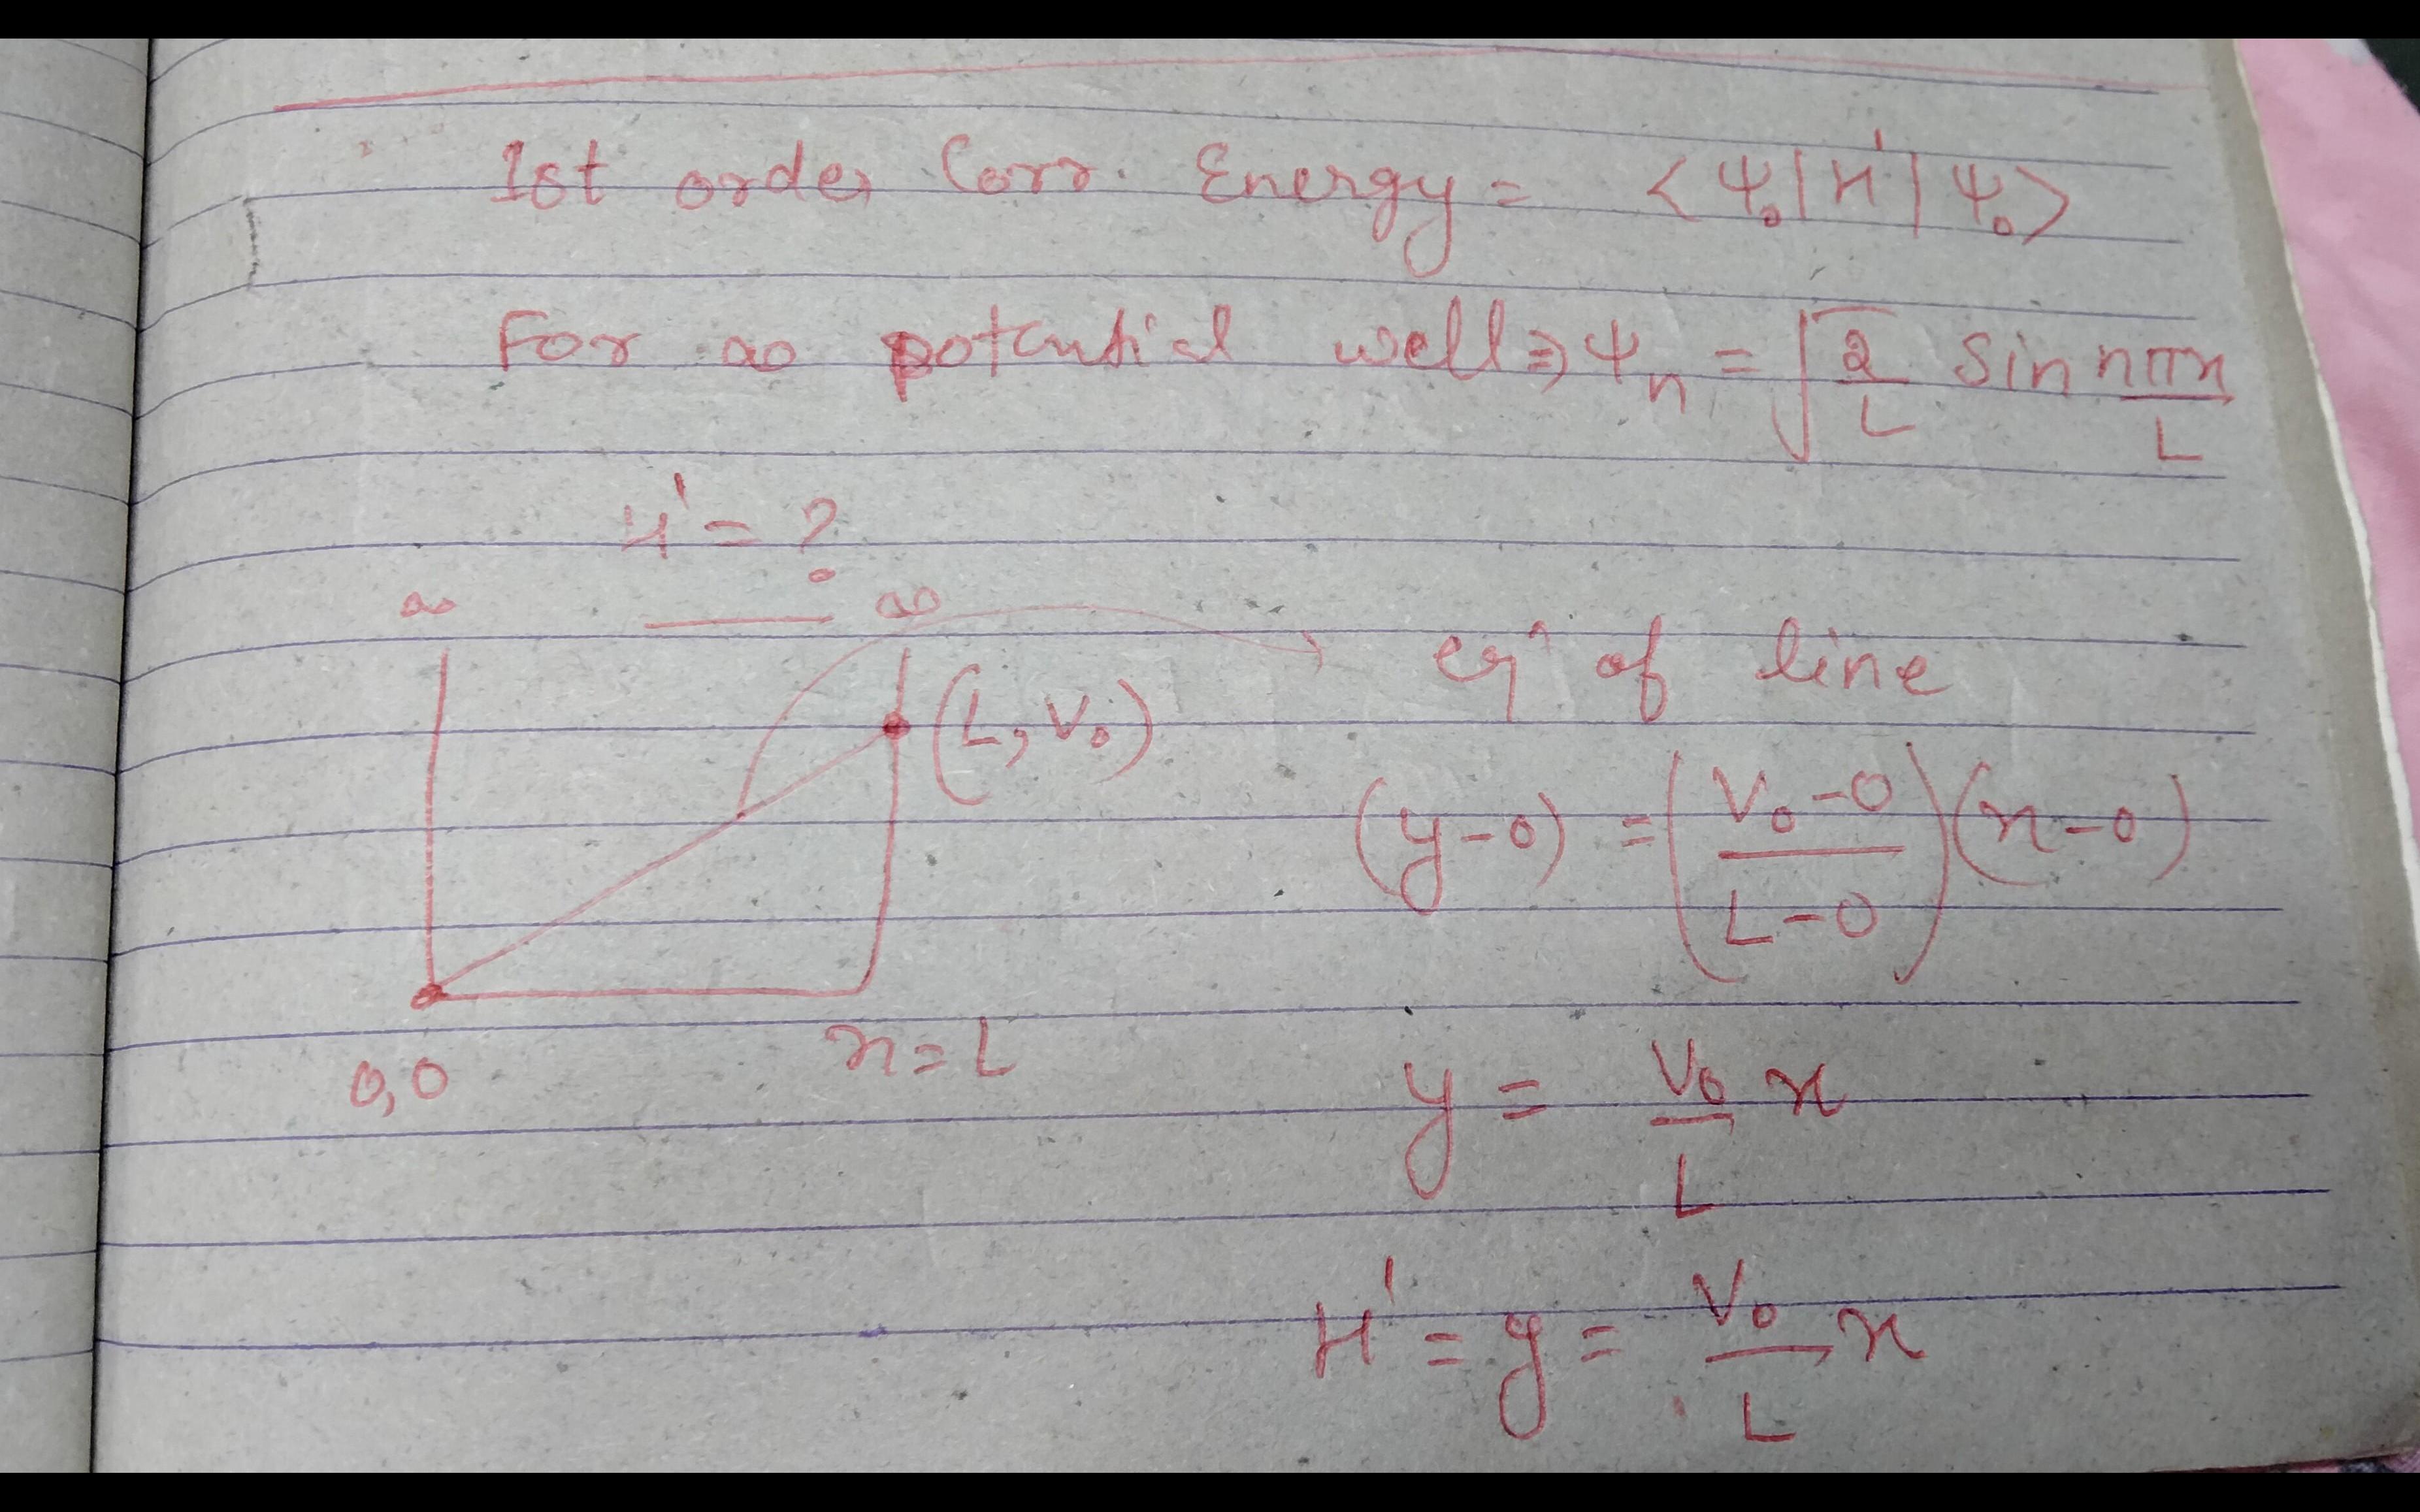 1st order Corr. Energy = <Ψ₀|H'|Ψ₀>
For ∞ potential well ⇒ Ψₙ = √(2/L) Sin nπx/L
H' = ?
∞ ∞
(L, V₀)
0,0
x = L
eqⁿ of line
(y-0) = (V₀-0/L-0)(x-0)
y = V₀/L x
H' = y = V₀/L x